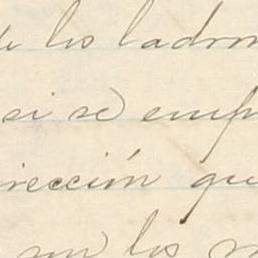 de los ladron
si se emp
rección que
un los